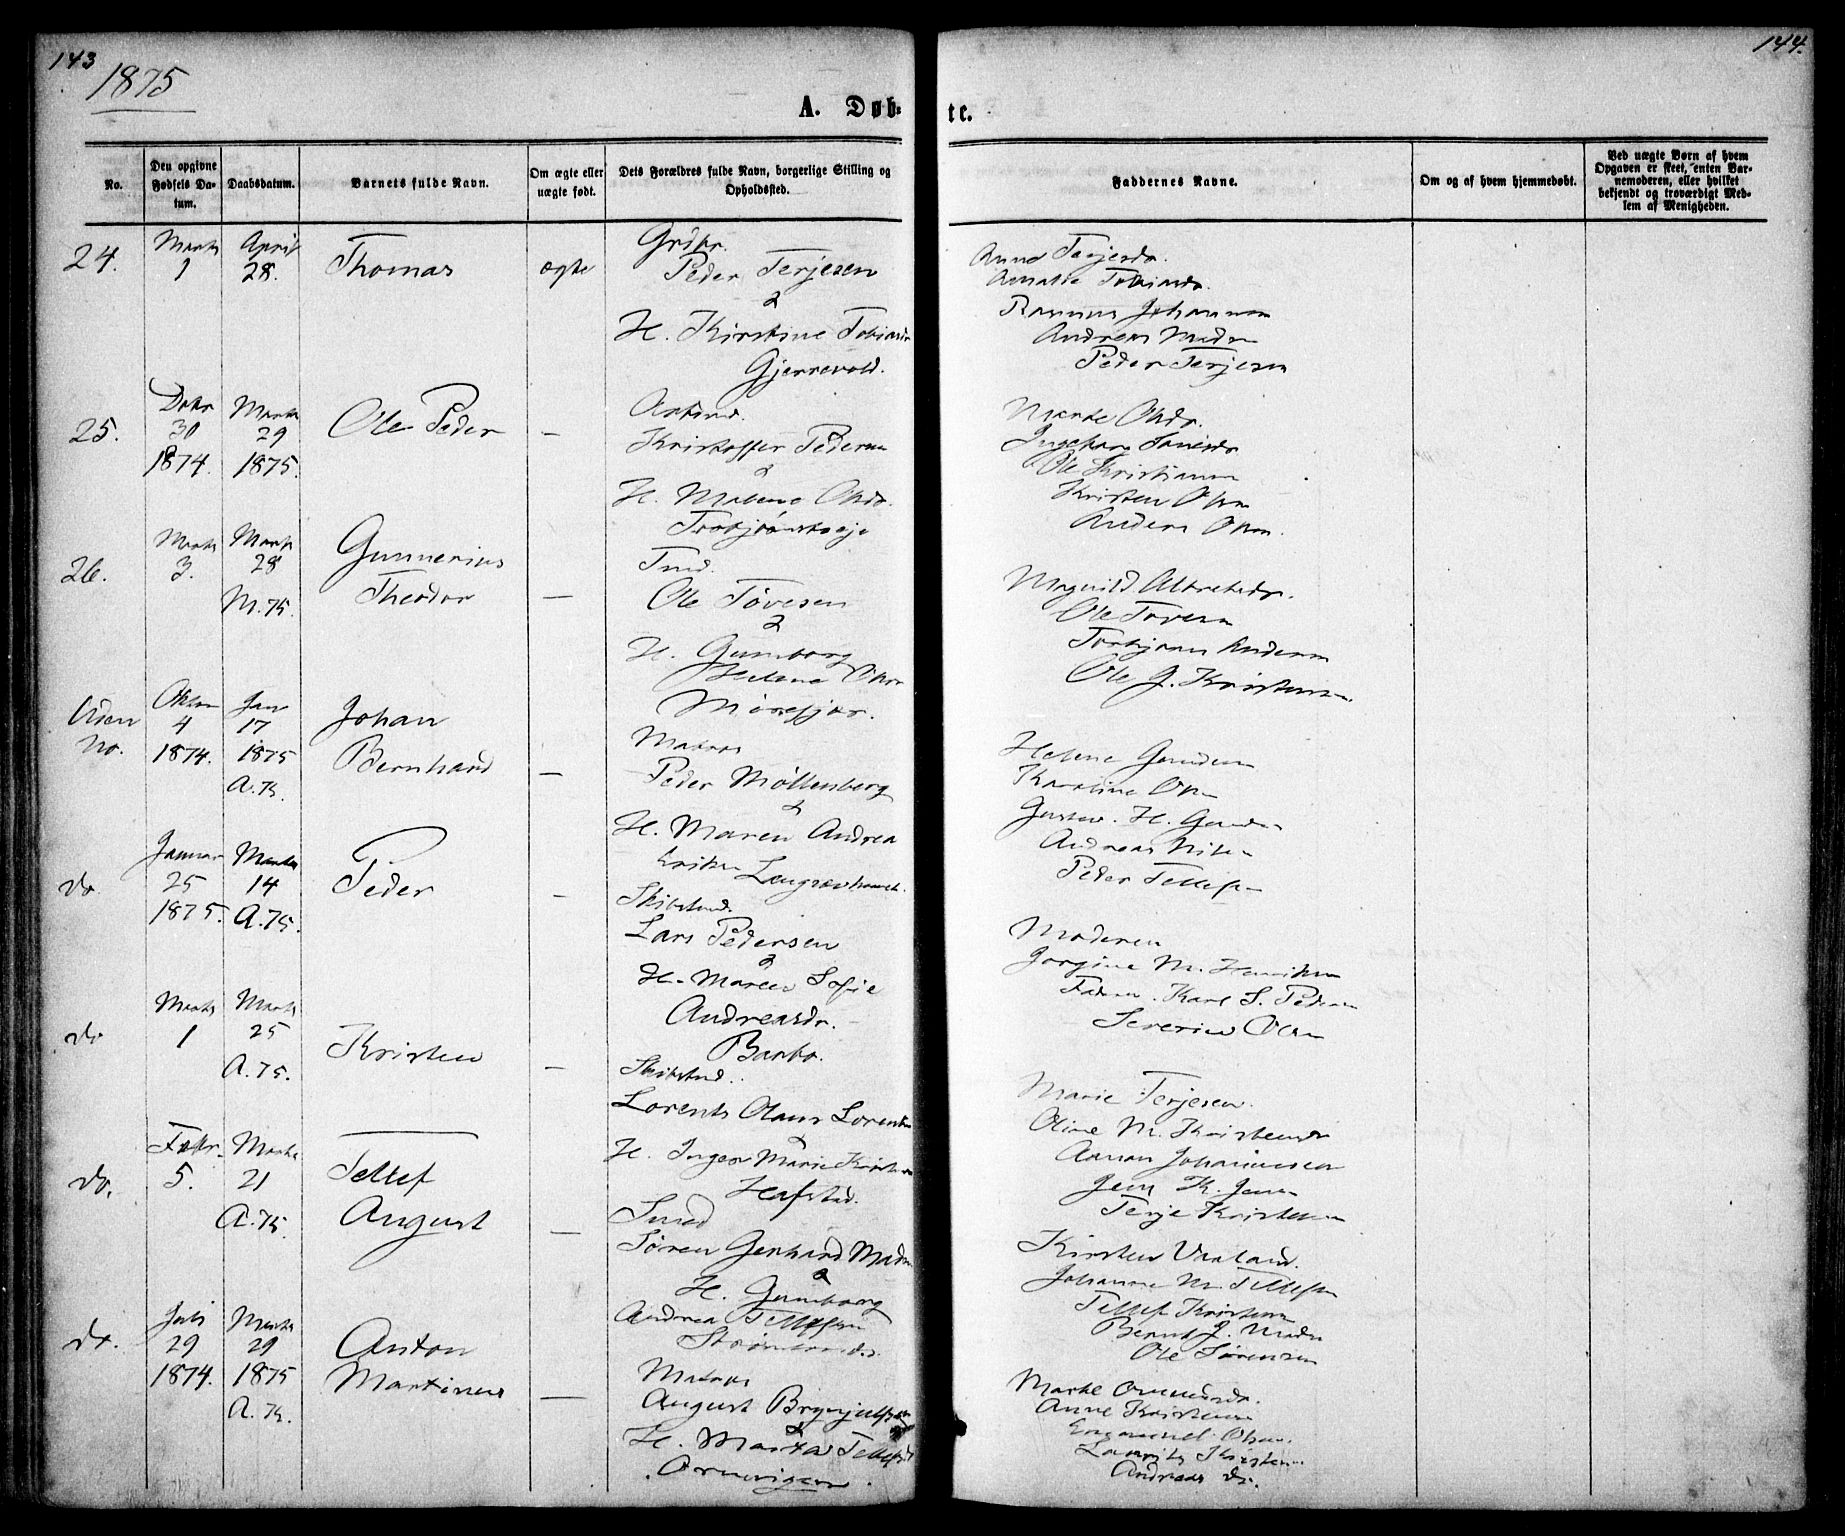 143
1875
144.
A. Døb-
te.
No.
Den opgivne Fødsels Da-tum.
Daabsdatum.
Barnets fulde Navn.
Om ægte eller uægte født.
Dets Forældres fulde Navn, borgerlige Stilling og Opholdssted.
Faddernes Navne.
Om og af hvem hjemmedøbt.
Ved uægte Børn af hvem Opgaven er skeet, enten Bar-nemoderen, eller hvilket bekjendt og troværdigt Med-lem af Menigheden.
24.
Marts
1
April
28.
Thomas
ægte
Grdbr
Peder Terjesen
&
H. Kirstine
Gjerrevold.
Anne Terjesdr.
Amalie
Rasmus Johannesen
Andreas Madsen
Peder Terjesen
25.
Decbr
30
1874.
Marts
29
1875.
Ole Peder
—
Arbmd.
Kristoffer Pedersen
&
H. Malene Olsdr.
Marte Olsdr.
Ingebor
Ole Kristiansen
Kristen Olsen
Anders Olsen.
26.
Marts
3.
Marts
28
M. 75.
Gunnerius
Theodor
—
Tmd.
Ole Tövesen
&
H. Gunborg
Helene Olsdr
Mörefjær.
Magnild
Ole Tovesen
Torbjörn Andersen
Ole J. Kristensen
Uden
No.
4
1874.
Jan
17
1875
A. 75.
Johan
Bernhard
—
Matros
Peder Möllenberg
&
H. Maren Andrea
Helene
Karoline Olsen
Gustav. H.
Andreas Nilsen
Peder Tellefsen
do
Januar
25
1875.
Marts
14
A. 75.
Peder
—
Skibstmd.
Lars Pedersen
&
H. Maren Sofie
Andreasdr.
Barbo.
Moderen
Jorgine M. Henriksen
Faderen. Karl S. Pedersen
Severin Olsen
do
Marts
1
Marts
25
A. 75.
Kristen
—
Skibstmd.
Lorents Olaus Lorentsen
&
H. Inger Marie
Hafstad.
Marie Terjesen.
Oline M. Kristensdr
Aanon Johannessen
Jens K. Jensen
Terje Kristensen
do.
Febr.
5.
Marts
21
A. 75.
Tellef
August
—
Smed
Sören Gerhard Madsen
&
H. Gunborg
Andrea Tellefsen
Kirsten Vaaland.
Johanne M. Tellefsen
Tellef Kristensen
Bernt J. Madsen
Ole Sörensen
do.
Juli
29
1874.
Marts
29
1875
A. 75.
Anton
Martinius
—
Matros
August Brynjulfsen
&
H. Marta Tellefsdr
Arnevigen.
Marte
Anne Kristensen
Emanuel Olsen.
Andreas do.